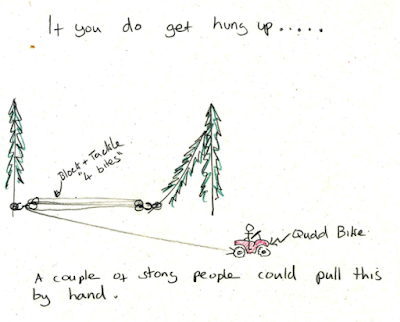 If you do get hung up.....
Block + Tackle
"4 bites"
Quad Bike
A couple of stong people could pull this
by hand.